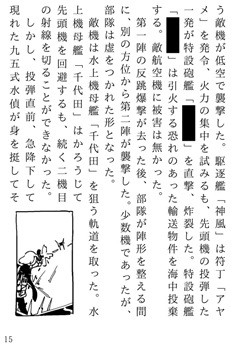 う敵機が低空で襲撃した。駆逐艦「神風」は符丁「アヤ
メ」を発令、火力の集中を試みるも、先頭機の投弾した
一発が特設砲艦「███」を直撃、炸裂した。特設砲艦
「███」は引火する恐れのあった輸送物件を海中投棄
する。敵航空機に被害は無かった。
第一陣の反跳爆撃が去った後、部隊が陣形を整える間
に、別の方位から第二陣が襲撃した。少数機であったが、
部隊は虚をつかれた形となった。
敵機は水上機母艦「千代田」を狙う軌道を取った。水
上機母艦「千代田」はかろうじて
先頭機を回避するも、続く二機目
の射線を切ることができなかった。
しかし、投弾直前、急降下して
現れた九五式水偵が身を挺してそ
15